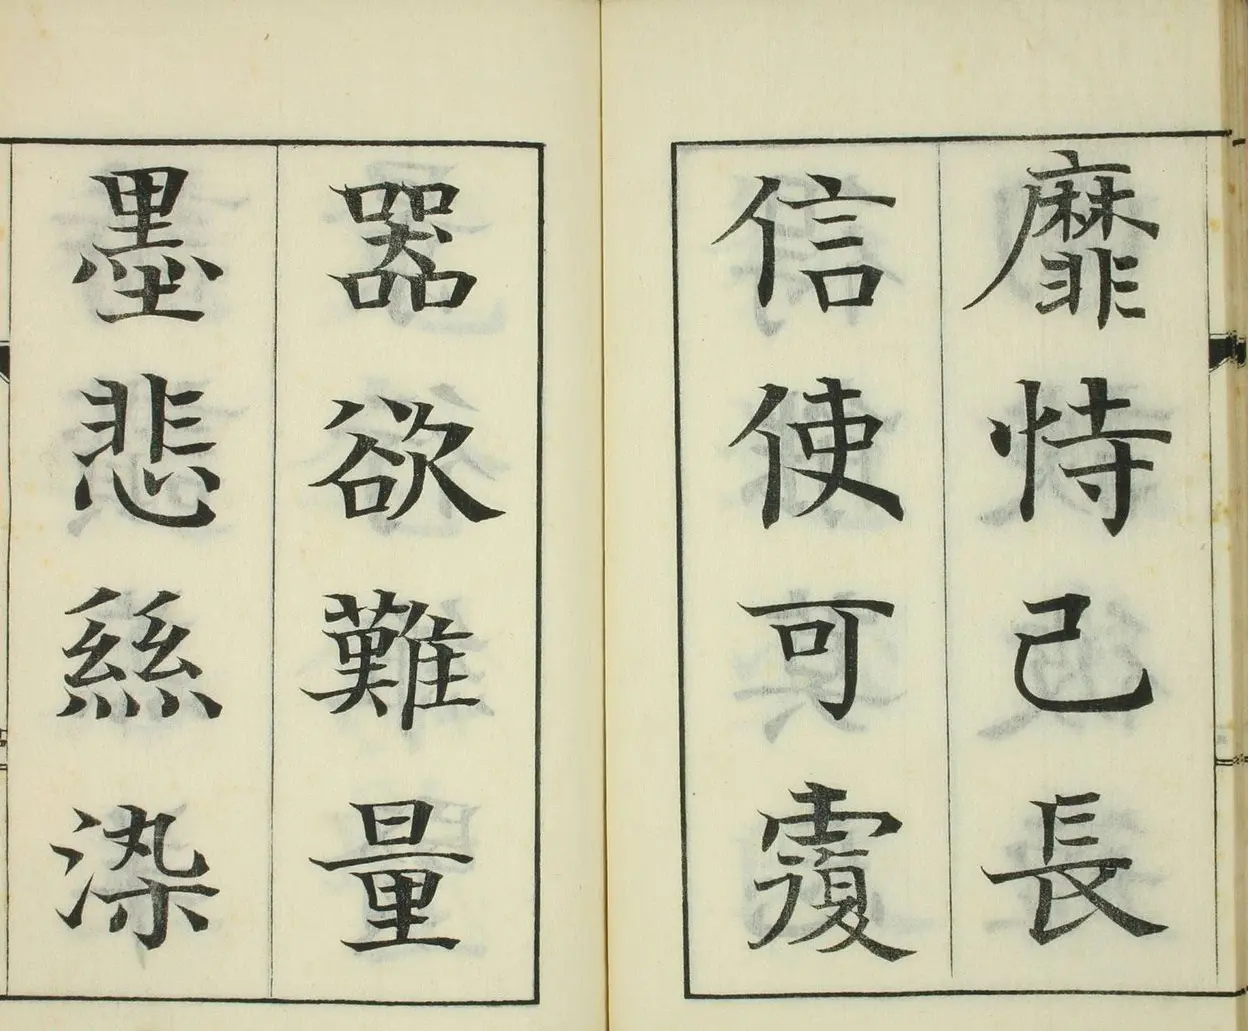 靡恃己長
信使可覆
器欲難量
墨悲絲染